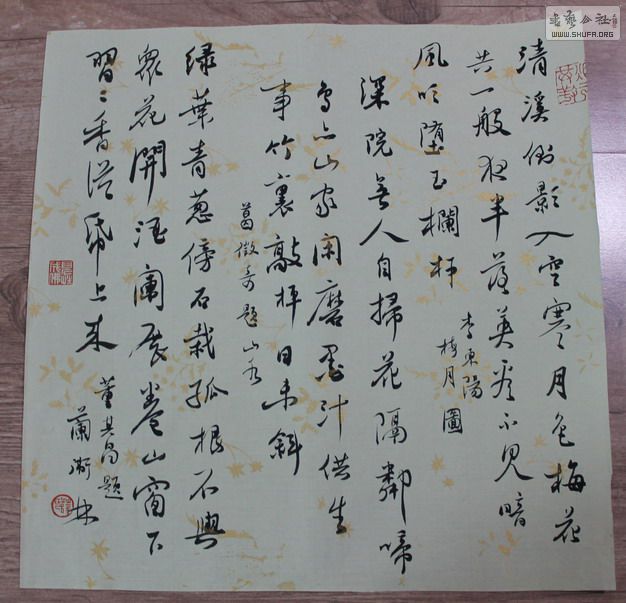 清溪倒影入空寒月色梅花
共一般夜半落英看不見暗
風吹堕玉欄杆
李東陽
梅月圖
深院無人自掃花隔鄰啼
鸟亦山家闲磨墨汁供生
事竹裏敲枰日未斜
葛徵奇題山水
绿葉青葱傍石栽孤根不與
衆花開酒阑展卷山窗下
習〻香從纸上来
董其昌題
蘭
书艺公社
WWW.SHUFA.ORG